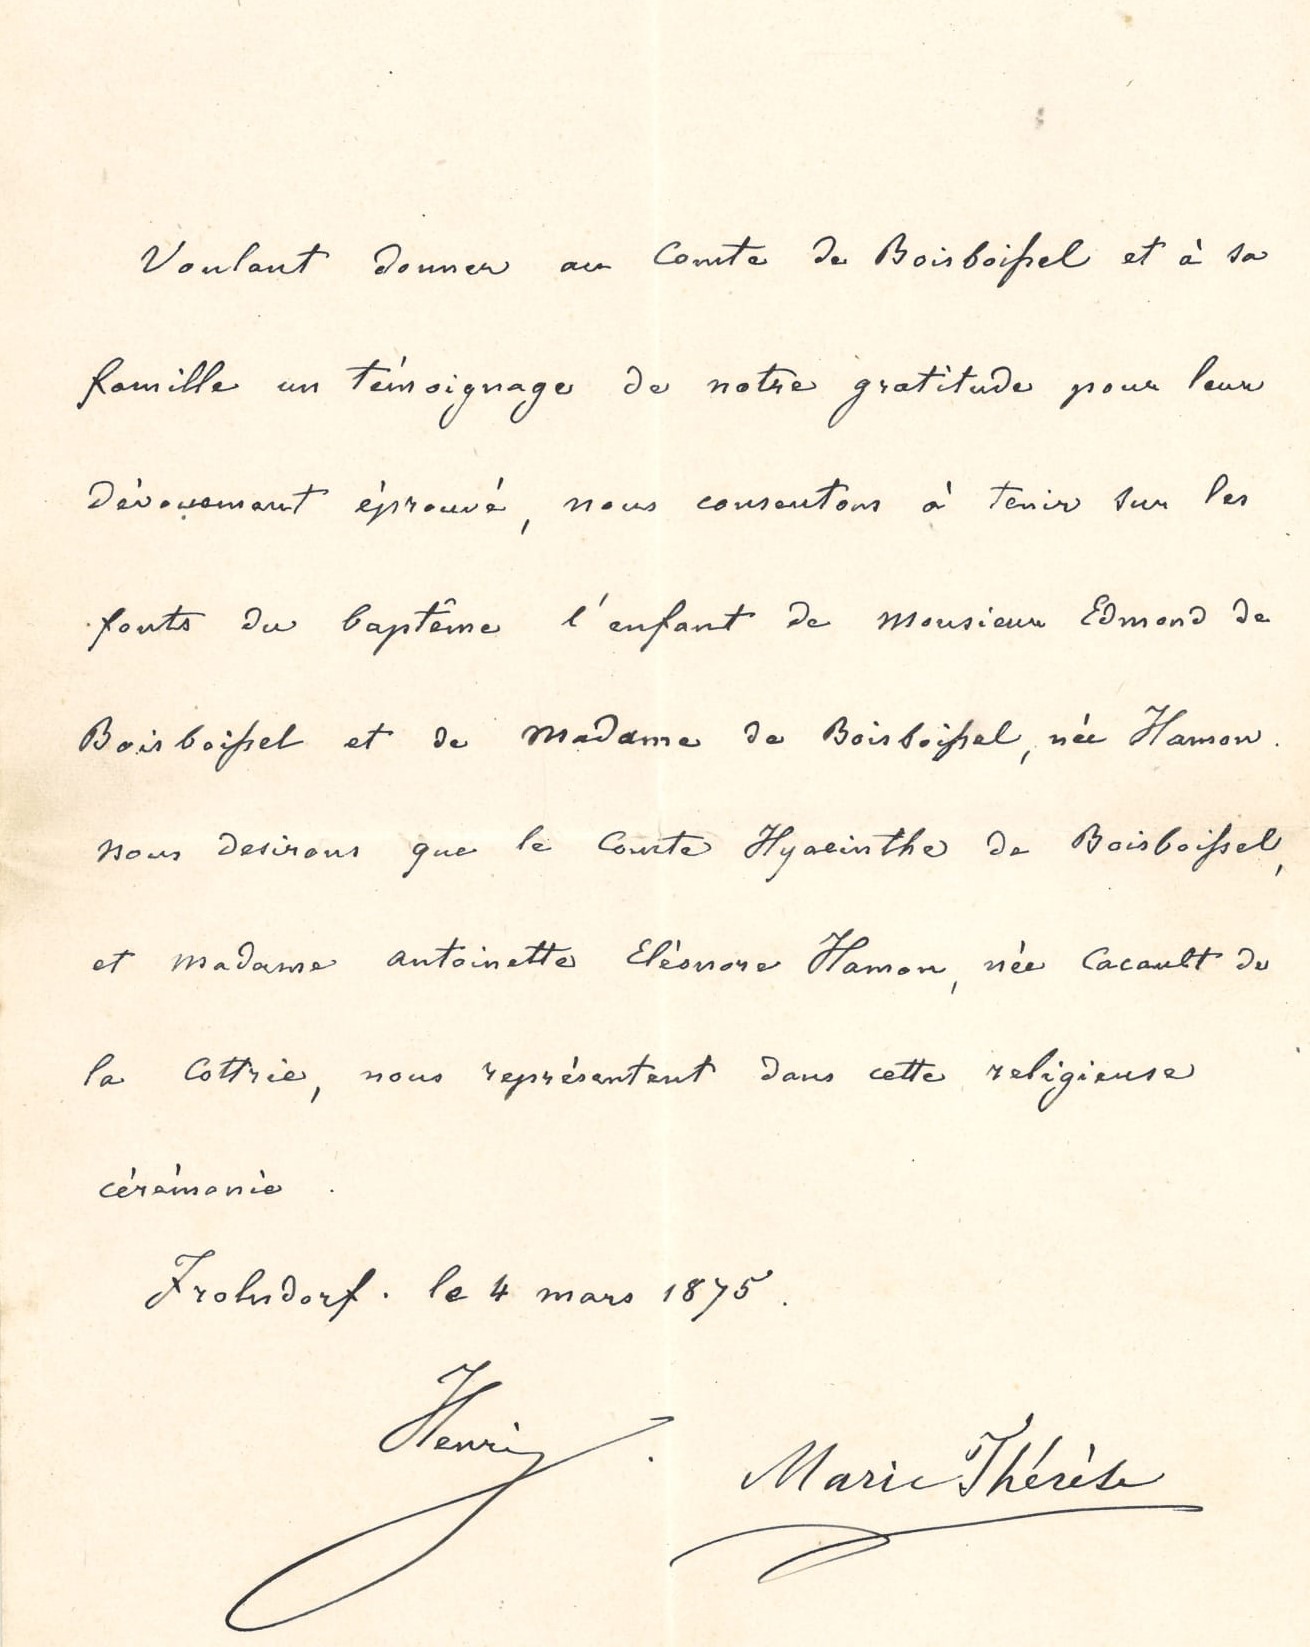 Voulant donner au Comte de Boisboissel et à sa
famille un témoignage de notre gratitude pour leur
dévouement éprouvé, nous consentons à tenir sur les
fonts du baptême l'enfant de Monsieur Edmond de
Boisboissel et de Madame de Boisboissel, née Hamon.
nous desirons que le Comte Hyacinthe de Boisboissel,
et Madame Antoinette Eléonore Hamon, née Cacault de
la Cottrie, nous représentent dans cette religieuse
cérémonie.
Frohsdorf. le 4 mars 1875.
Henri.
Marie Thérèse